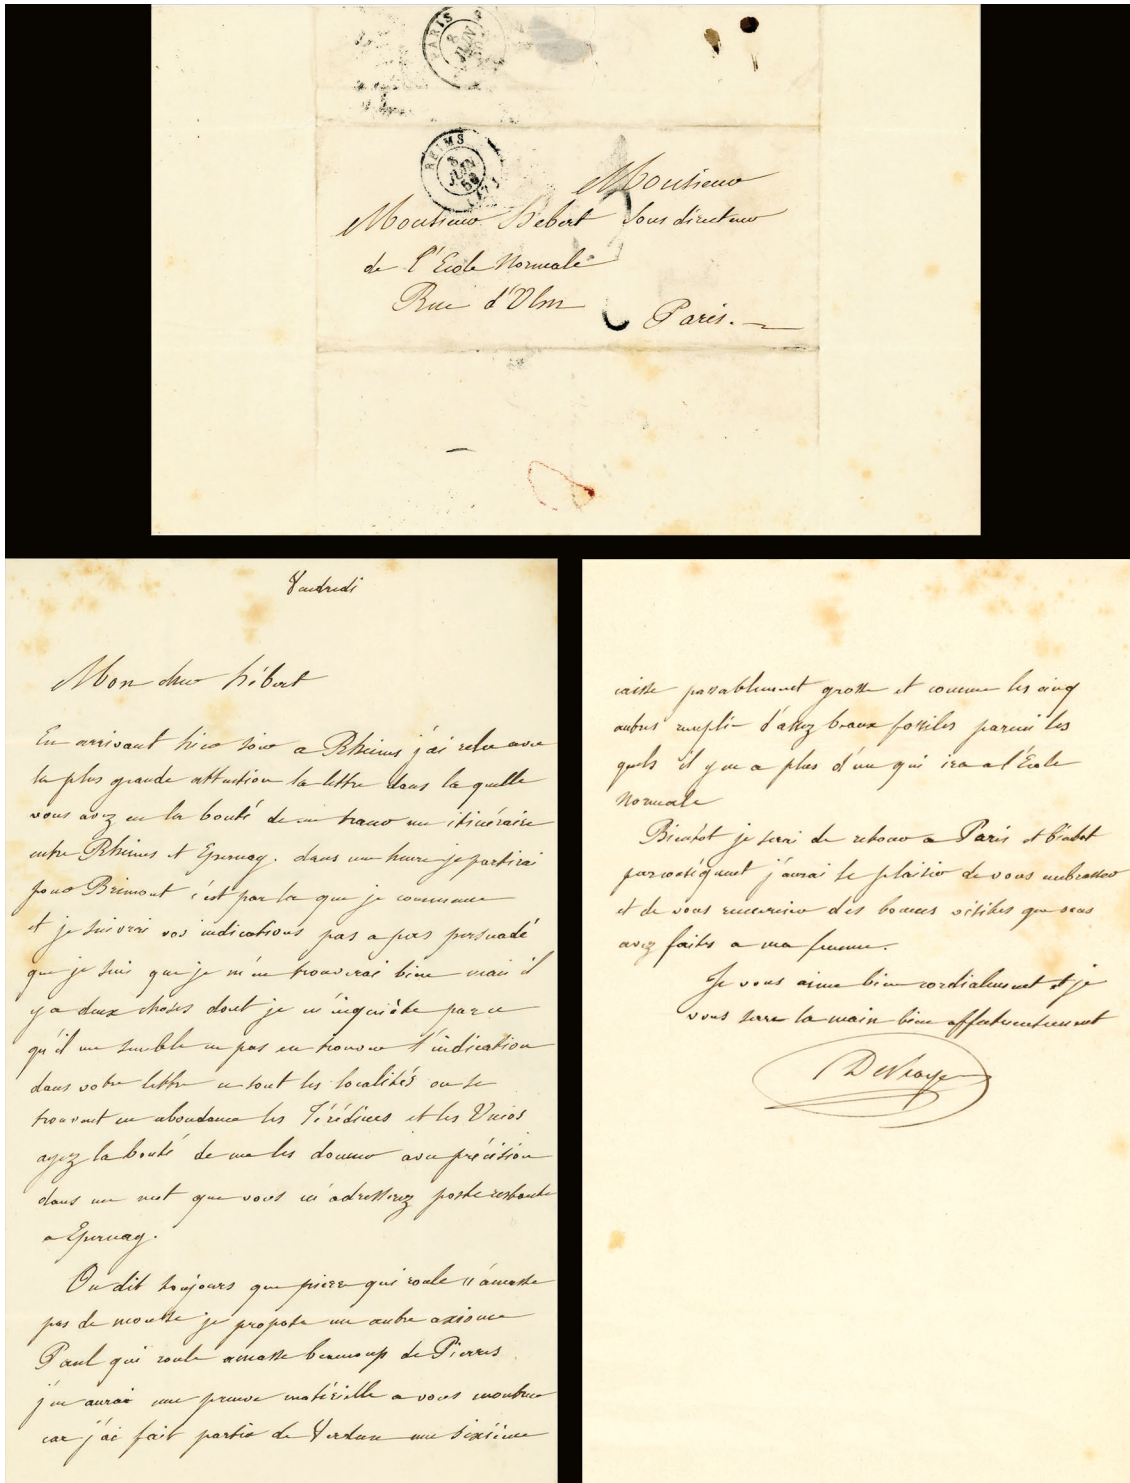 PARIS
8
JUIN
REIMS
8
JUIN
Monsieur
Monsieur Hébert Sous directeur
de l'Ecole Normale
Rue d'Ulm
Paris.
Vendredi
Mon cher hébert
En arrivant hier soir a Rheims j'ai relu avec
la plus grande attention la lettre dans la quelle
vous avez eu la bonté de me tracer un itinéraire
entre Rheims et Epernay. dans une heure je partirai
pour Brimont c'est par la que je commence
et je suivrai vos indications pas a pas persuadé
que je suis que je m'en trouverai bien mais il
y a deux choses dont je m'inquiète parce
qu'il me semble ne pas en trouver l'indication
dans votre lettre ce sont les localités ou se
trouvent en abondance les Térédines et les Unios
ayez la bonté de me les donner avec précision
dans un mot que vous m'adresserez poste restante
a Epernay.
On dit toujours que pierre qui roule n'amasse
pas de mousse je propose un autre axiome
Paul qui roule amasse beaucoup de Pierres
j'en aurai une preuve matérielle a vous montrer
car j'ai fait partir de Verdun une sixième
caisse passablement grosse et comme les cinq
autres remplie d'assez beaux fossiles parmi les
quels il y en a plus d'un qui ira a l'École
Normale
Bientot je serai de retour a Paris et bientot
par conséquent j'aurai le plaisir de vous embrasser
et de vous remercier des bonnes visites que vous
avez faites a ma femme.
Je vous aime bien cordialement et je
vous serre la main bien affectueusement